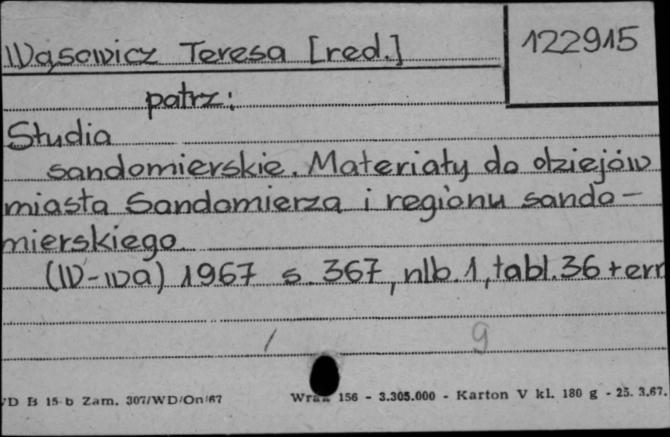 Wąsowicz Teresa [red.]
122915
patrz:
Studia
sandomierskie. Materiały do dziejów
miasta Sandomierza i regionu sando-
mierskiego.
(W-wa) 1967 s. 367, nlb. 1, tabl. 36 + err
/ 9
WD B 15-b Zam. 307/WD/On/67
156 - 3.305.000 - Karton V kl. 180 g - 25. 3.67.